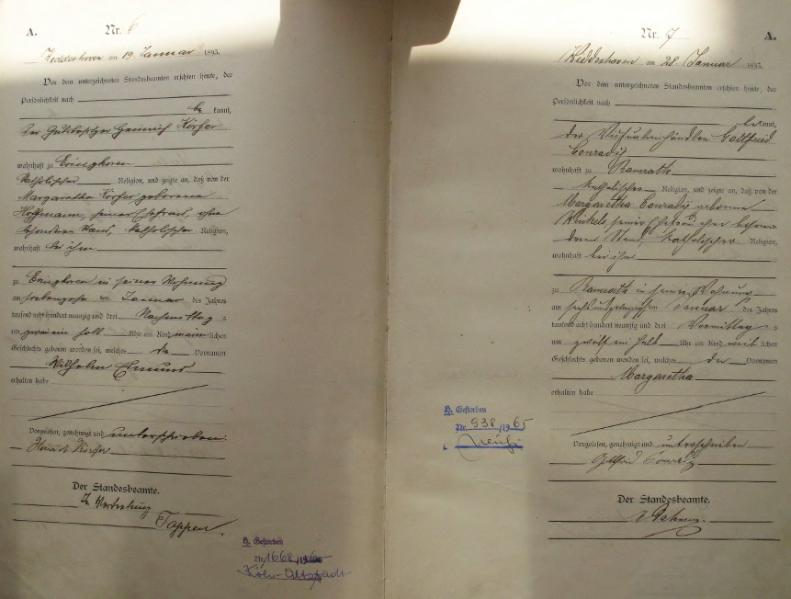 A.
Nr. 6
19 Januar 1893.
Vor dem unterzeichneten Standesbeamten erschien heute, der
Persönlichkeit nach
be kannt,
der Gutsbesitzer Heinrich Körfer
wohnhaft zu
katholischer Religion, und zeigte an, daß von der
Margaretha Körfer geborene
Hoffmann, seiner Ehefrau, ohne
besonderen Stand, katholischer Religion,
wohnhaft bei ihm
zu in seiner Wohnung
am siebenzehn ten Januar des Jahres
tausend acht hundert neunzig und drei Nachmittags
um Uhr ein Kind männ lichen
Geschlechts geboren worden sei, welches die Vornamen
Wilhelm Edmund
erhalten habe
Vorgelesen, genehmigt und unterschrieben.
Heinrich Körfer
Der Standesbeamte.
In Vertretung
Tappen.
Gestorben
Nr. 1668/19
Köln-Altstadt
Nr. 7
A.
am 28. Januar 1893.
Vor dem unterzeichneten Standesbeamten erschien heute, der
Persönlichkeit nach
be kannt,
der Gottfried
Conrady
wohnhaft zu Ramrath
katholischer Religion, und zeigte an, daß von der
Margaretha Conrady geborene
Winkels, seiner Ehefrau, ohne beson-
deren Stand, katholischer Religion,
wohnhaft bei ihm
zu Ramrath in seiner Wohnung
am Januar des Jahres
tausend acht hundert neunzig und drei Vormittags
um Uhr ein Kind weib lichen
Geschlechts geboren worden sei, welches den Vornamen
Margaretha
erhalten habe
Vorgelesen, genehmigt und unterschrieben
Gottfried Conrady
Der Standesbeamte.
Gestorben
Nr. 938/1965
Neuß